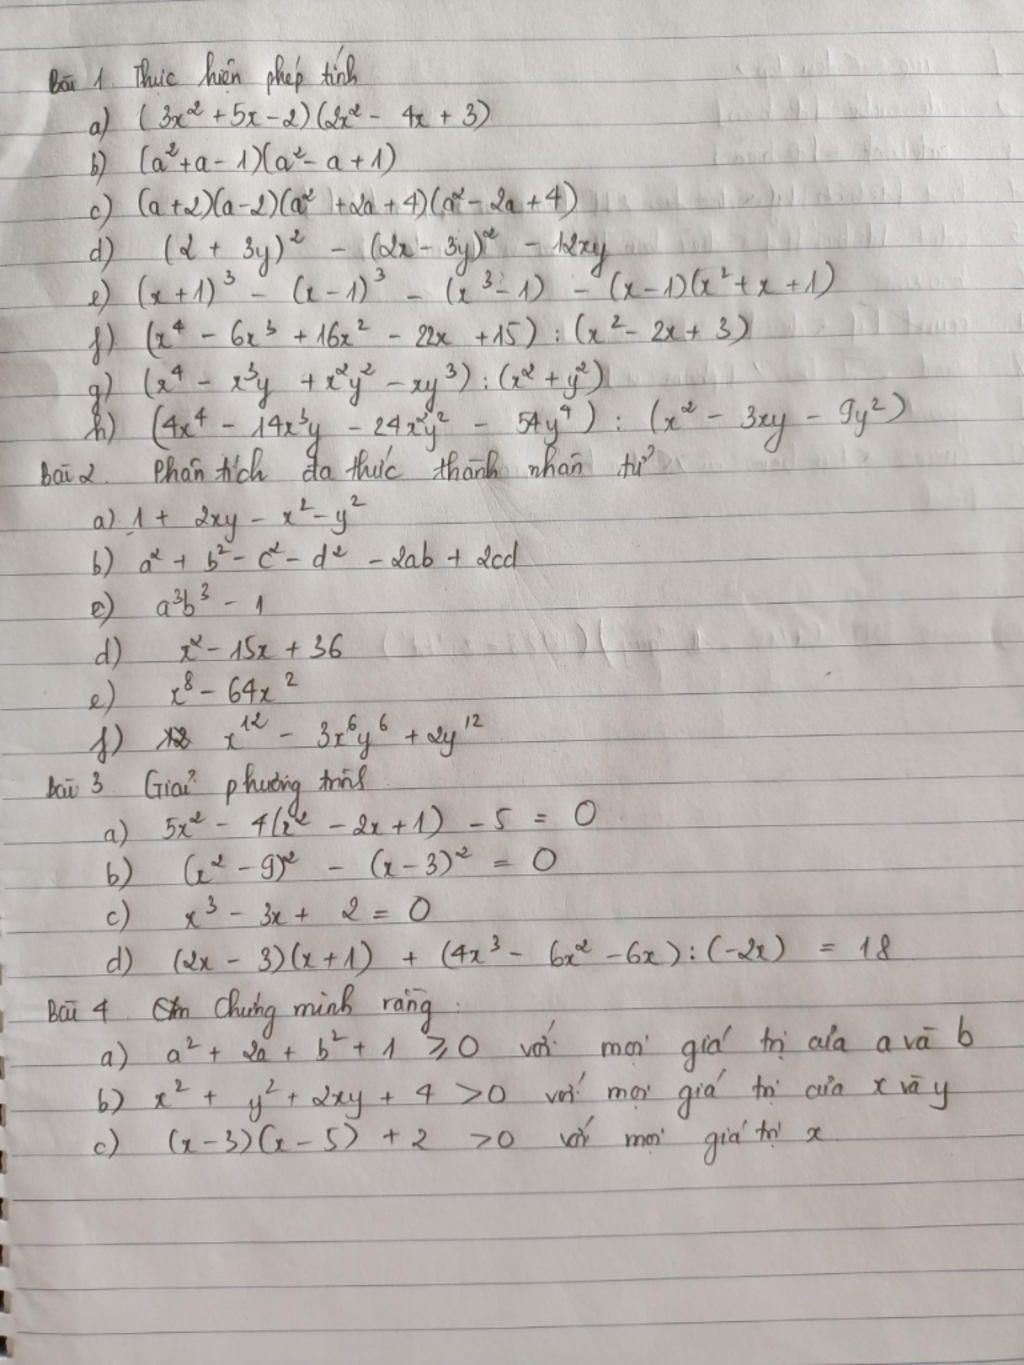 Bài 1. Thực hiện phép tính
a) (3x² + 5x - 2)(2x² - 4x + 3)
b) (a² + a - 1)(a² - a + 1)
c) (a+2)(a-2)(a² + 2a + 4)(a² - 2a + 4)
d) (2 + 3y)² - (2x - 3y)² - 12xy
e) (x+1)³ - (x-1)³ - (x³-1) - (x-1)(x² + x + 1)
f) (x⁴ - 6x³ + 16x² - 22x + 15) : (x² - 2x + 3)
g) (x⁴ - x³y + x²y² - xy³) : (x² + y²)
h) (4x⁴ - 14x³y - 24x²y² - 54y⁴) : (x² - 3xy - 9y²)
Bài 2. Phân tích đa thức thành nhân tử
a) 1 + 2xy - x² - y²
b) a² + b² - c² - d² - 2ab + 2cd
c) a³b³ - 1
d) x² - 15x + 36
e) x⁸ - 64x²
f) x¹² - 3x⁶y⁶ + 2y¹²
Bài 3 Giải phương trình
a) 5x² - 4(x² - 2x + 1) - 5 = 0
b) (x² - 9)² - (x - 3)² = 0
c) x³ - 3x + 2 = 0
d) (2x - 3)(x + 1) + (4x³ - 6x² - 6x) : (-2x) = 18
Bài 4 Chứng minh rằng :
a) a² + 2a + b² + 1 ⩾ 0 với mọi giá trị của a và b
b) x² + y² + 2xy + 4 > 0 với mọi giá trị của x và y
c) (x - 3)(x - 5) + 2 > 0 với mọi giá trị x